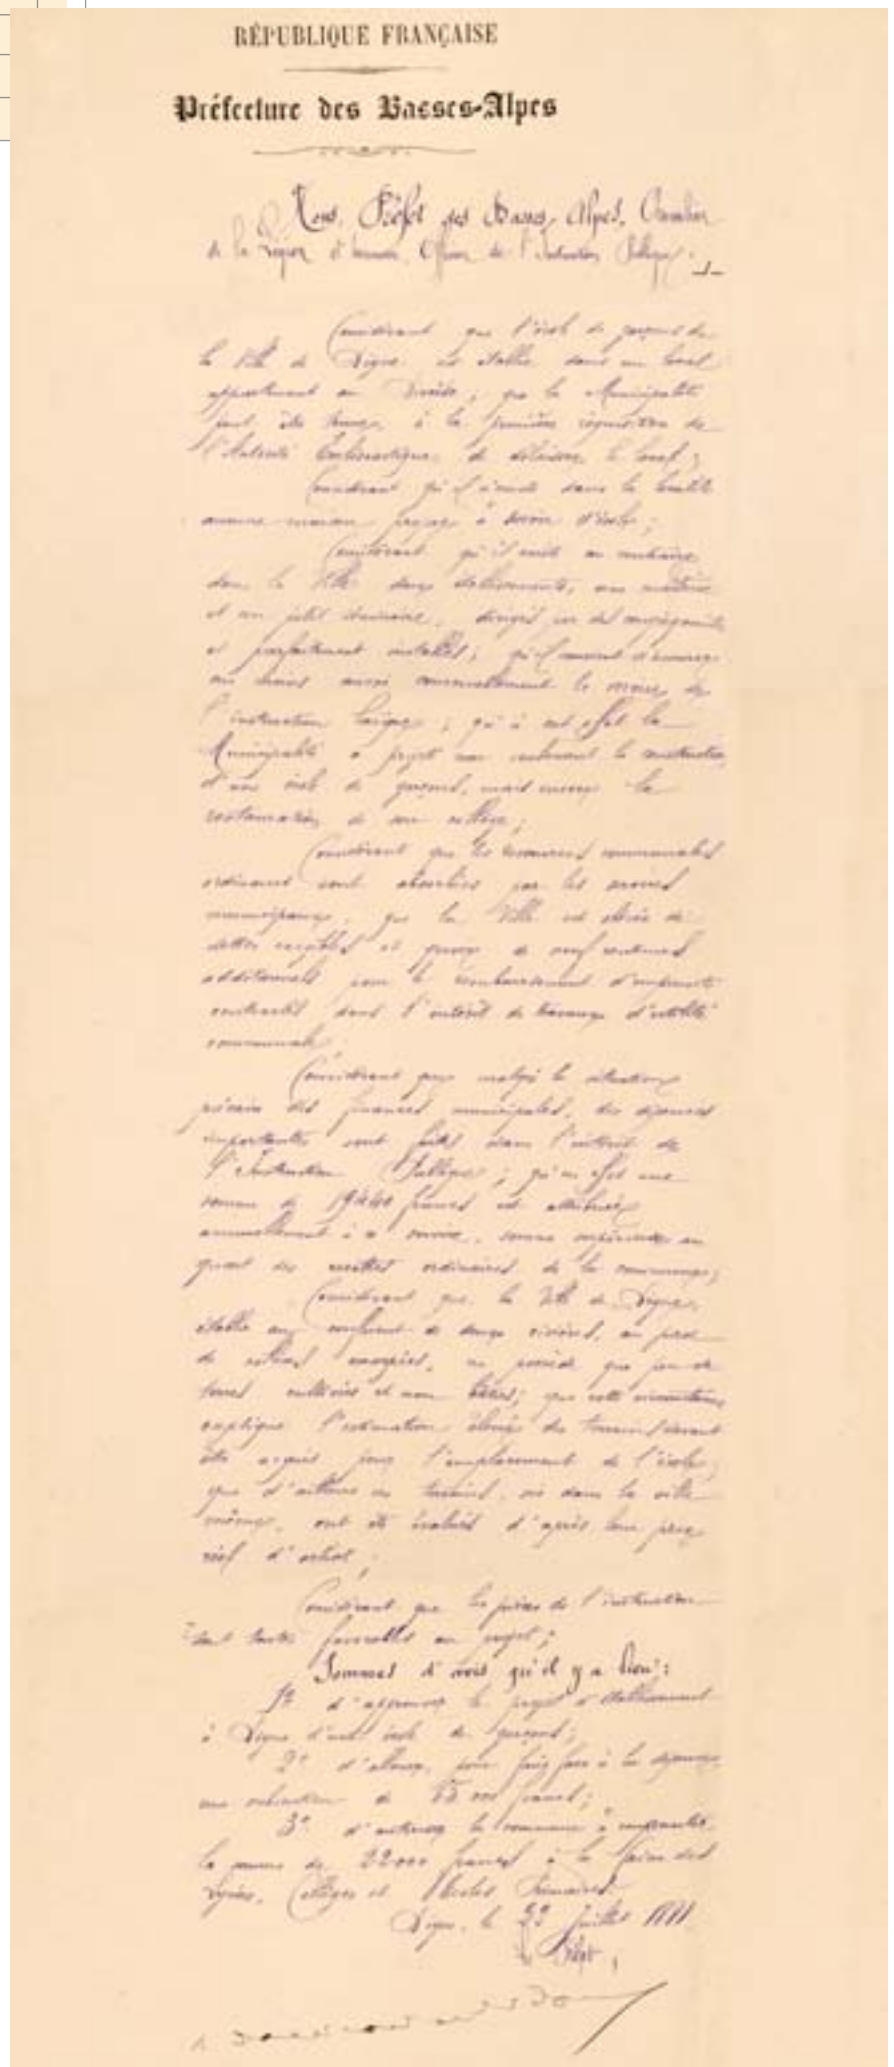 RÉPUBLIQUE FRANÇAISE
Préfecture des Basses-Alpes
Nous, Préfet des Basses-Alpes, Chevalier
de la Légion d'honneur, Officier de l'Instruction Publique,
Considérant que l'école de garçons de
la Ville de Digne est établie dans un local
appartenant au Diocèse ; que la Municipalité
peut être tenue, à la première réquisition de
l'Autorité Ecclésiastique, de délaisser le local ;
Considérant qu'il n'existe dans la localité
aucune maison propre à servir d'école ;
Considérant qu'il existe au contraire
dans la Ville deux établissements, une maîtrise
et un petit séminaire, dirigés par des congréganistes
et parfaitement installés ; qu'il convient d'assurer
le succès de
l'instruction laïque ; qu'à cet effet la
Municipalité a projeté non seulement la construction
d'une école de garçons, mais encore la
restauration de son collège ;
Considérant que les ressources communales
ordinaires sont absorbées par les services
municipaux, que la Ville est obérée de
dettes exigibles et grevée de neuf centimes
additionnels pour le remboursement d'emprunts
contractés dans l'intérêt de travaux d'utilité
communale ;
Considérant que malgré la situation
précaire des finances municipales, des dépenses
importantes sont faites dans l'intérêt de
l'Instruction Publique ; qu'en effet une
somme de francs est attribuée
annuellement à ce service, somme supérieure au
quart des recettes ordinaires de la commune ;
Considérant que la Ville de Digne,
établie au confluent de deux rivières, au pied
de collines escarpées, ne possède que peu de
terres cultivées et non bâties ; que cette circonstance
explique l'estimation élevée des terrains devant
être acquis pour l'emplacement de l'école ;
que d'ailleurs ces terrains, sis dans la ville
même, ont été évalués d'après leur prix
réel d'achat ;
Considérant que les pièces de l'instruction
sont toutes favorables au projet ;
Sommes d'avis qu'il y a lieu :
1° d'approuver le projet d'établissement
à Digne d'une école de garçons ;
2° d'allouer, pour faire face à la dépense,
une subvention de francs ;
3° d'autoriser la commune à emprunter
la somme de 22000 francs à la Caisse des
Lycées, Collèges et Ecoles Primaires.
Digne, le 29 Juillet 1881
Le Préfet,